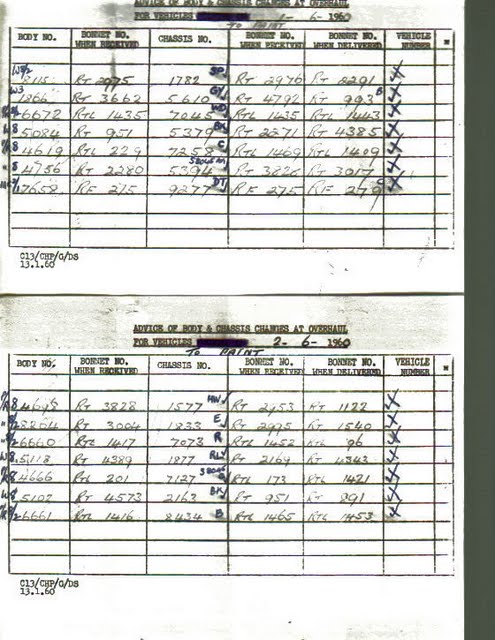 ADVICE OF BODY & CHASSIS CHANGES AT OVERHAUL
FOR VEHICLES 1- 6- 1960
TO PAINT
BODY NO. BONNET NO. WHEN RECEIVED CHASSIS NO. BONNET NO. WHEN RECEIVED BONNET NO. WHEN DELIVERED VEHICLE NUMBER
8115 RT 2975 1782 SP RT 2976 RT 2291
W3 1866 RT 3662 5610 GY RT 4792 RT 993
6672 RTL 1435 7045 WD RTL 1435 RTL 1443
W8 5084 RT 951 5379 BK RT 2271 RT 4385
8 4619 RTL 229 7258 C RTL 1469 RTL 1409
4756 RT 2280 5394 RT 3826 RT 3017
7658 RF 215 9277 DT RF 275 RF 279
C13/CHP/G/DS
13.1.60
ADVICE OF BODY & CHASSIS CHANGES AT OVERHAUL
FOR VEHICLES 2- 6- 1960
TO PAINT
BODY NO. BONNET NO. WHEN RECEIVED CHASSIS NO. BONNET NO. WHEN RECEIVED BONNET NO. WHEN DELIVERED VEHICLE NUMBER
8 4695 RT 3828 1577 HW RT 2953 RT 1122
8264 RT 3004 1833 E RT 2975 RT 1540
6660 RTL 1417 7073 R RTL 1452 RTL 96
W8 5118 RT 4389 1877 RLY RT 2169 RT 4343
8 4666 RTL 201 7127 RTL 173 RTL 1421
W8 5102 RT 4573 2163 BK RT 951 RT 891
6661 RTL 1416 8434 B RTL 1465 RTL 1453
C13/CHP/G/DS
13.1.60